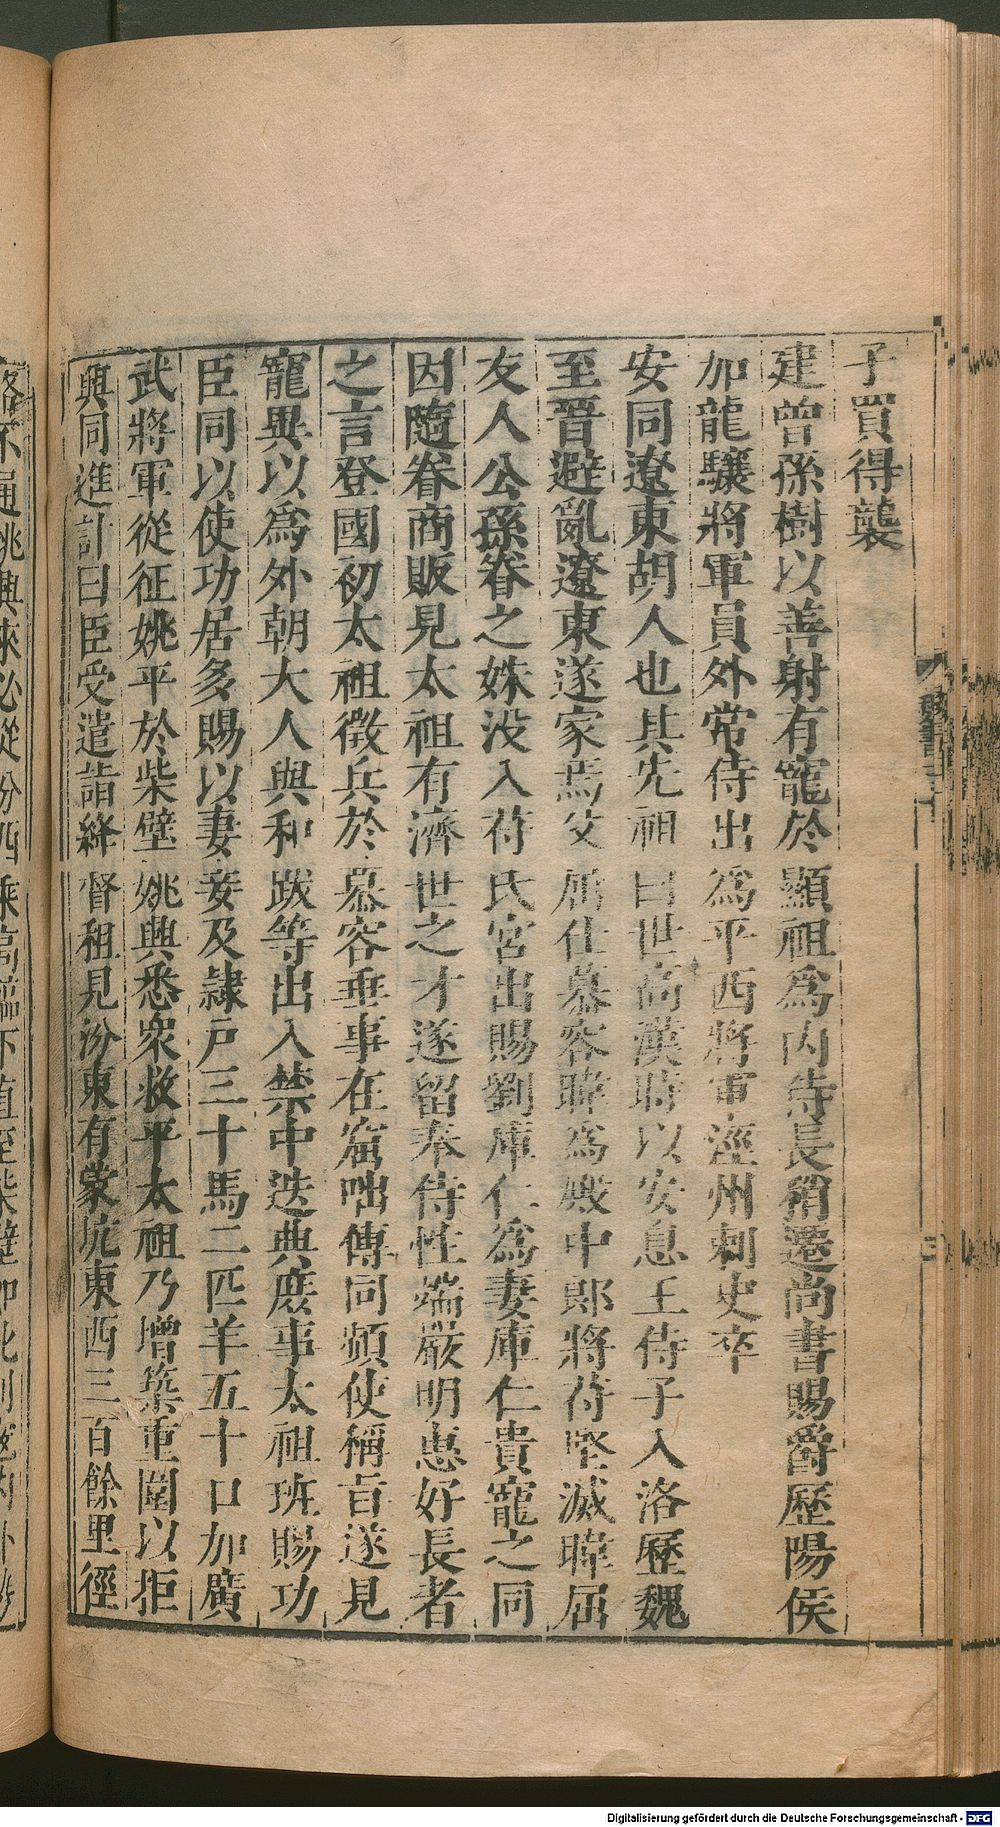 子買得襲
建曾孫樹以善射有寵於顯祖爲內侍長稍遷尚書賜爵歷陽侯
加龍驤將軍員外常侍出爲平西將軍涇州刺史卒
安同遼東胡人也其先祖曰世高漢時以安息王侍子入洛歷魏
至晉避亂遼東遂家焉父屈仕慕容暐爲殿中郎將苻堅滅暐屈
友人公孫眷之妹沒入苻氏宮出賜劉庫仁爲妻庫仁貴寵之同
因隨眷商販見太祖有濟世之才遂留奉侍性端嚴明惠好長者
之言登國初太祖徵兵於慕容垂事在窟咄傳同頻使稱旨遂見
寵異以爲外朝大人與和跋等出入禁中迭典庶事太祖班賜功
臣同以使功居多賜以妻妾及隷戶三十馬二匹羊五十口加廣
武將軍從征姚平於柴壁姚興悉衆救平太祖乃增築重圍以拒
興同進計曰臣受遣詣絳督租見汾東有蒙坑東西三百餘里徑
路不通姚興來必從汾西乘高臨下直至柴壁如此則
Digitalisierung gefördert durch die Deutsche Forschungsgemeinschaft - DFG